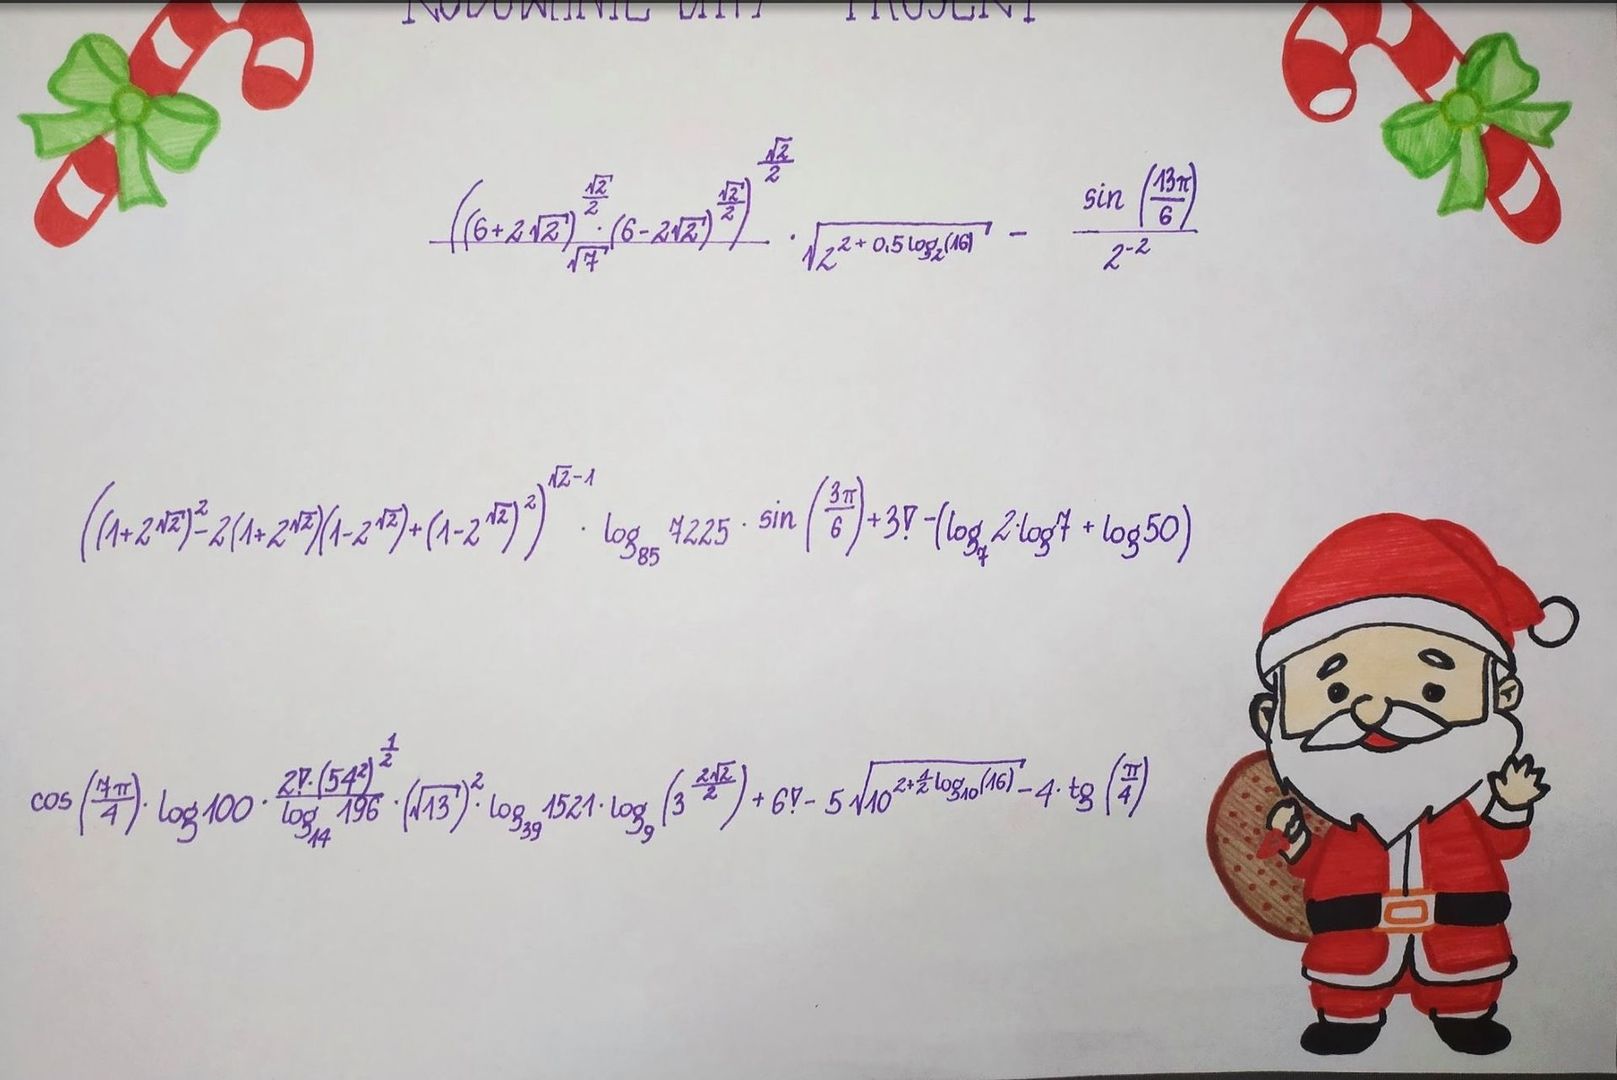 KODOWANIE DATY PROJEKT
((6+2√2)^(√2/2) · (6-2√2)^(√2/2))^(√2/2) / √7 · √(2^(2+0,5log₂(16))) - sin(13π/6) / 2^(-2)
((1+2^√2)²-2(1+2^√2)(1-2^√2)+(1-2^√2)²)^(√2-1) · log₈₅ 7225 · sin(3π/6)+3!-(log₇2·log7+log50)
cos(7π/4)·log100·(2!·(54²)^(1/2) / log₁₄ 196)·(√13)²·log₃₉1521·log₉(3^(2√2/2))+6!-5√(10^(2+½log₁₀(16)))-4·tg(π/4)